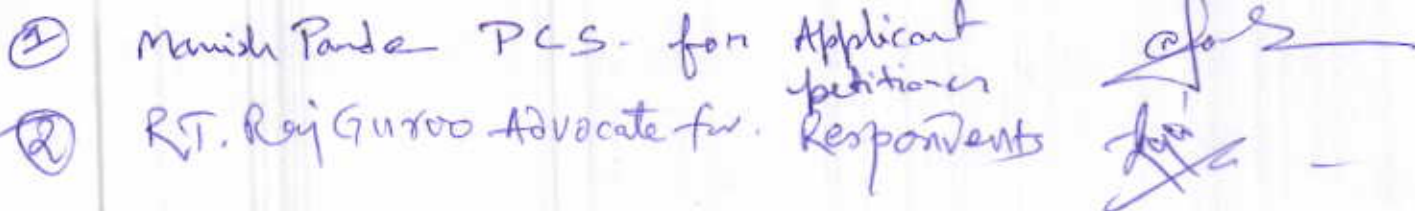 ① Manish Panda PCS. for Applicant
petitioner
② R.T. Raj Guroo Advocate for. Respondents